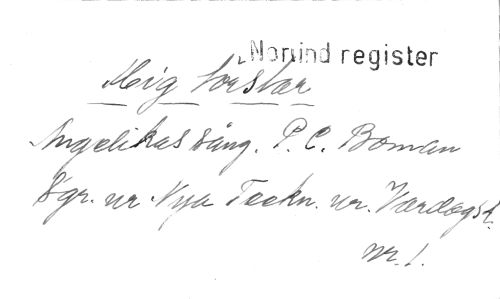 Norlind register
Mig lörstar
Angelikas sång. P. C. Boman
Sgr. ur Nya Teckn. ur. Vardagsl.
nr. 1.